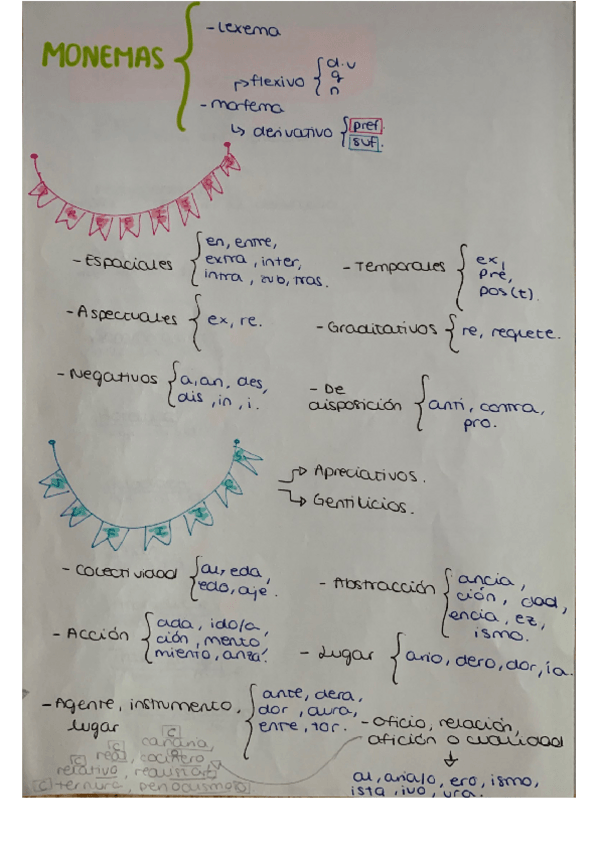 MONEMAS
- Lexema
flexivo
d.v
g
n
- morfema
derivativo
pref.
suf.
PREFIJOS
- Espaciales
en, entre,
extra, inter,
intra, sub, tras.
- Temporales
ex,
pre,
pos(t).
- Aspectuales
ex, re.
- Graditativos
re, requete.
- Negativos
a, an, des,
dis, in, i.
- De
disposición
anti, contra,
pro.
SUFIJOS
Apreciativos.
Gentilicios.
- Colectividad
al, eda,
edo, aje.
- Abstracción
ancia,
ción, dad,
encia, ez,
ismo.
- Acción
ada, ido/a
ción, mento
miento, anza.
- Lugar
ario, dero, dor, ía.
- Agente, instrumento,
lugar
ante, dera,
dor, dura,
ente, tor.
- Oficio, relación,
afición o cualidad
al, aria/o, ero, ismo,
ista, ivo, ura.
real, cocinero
relativo,
ternura,